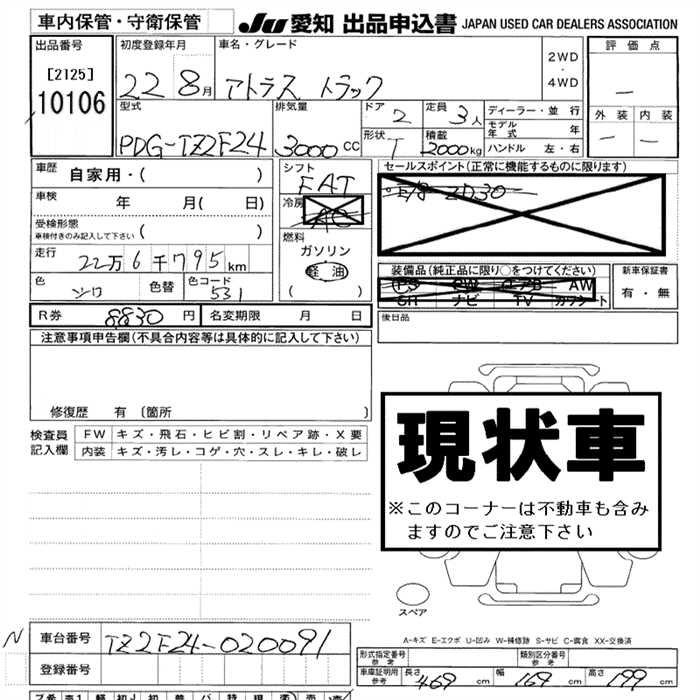 車内保管・守衛保管 JU 愛知 出品申込書 JAPAN USED CAR DEALERS ASSOCIATION
出品番号 初度登録年月 車名・グレード 2WD ・ 4WD 評価点
[2125] 22 8月 アトラス トラック —
10106 型式 排気量 ドア 2 定員 3人 ディーラー・並 行 外装 内装
モデル年式 年
PDG-TZ2F24 3000cc 形状 T 積載 2000kg ハンドル 左・右 — —
車歴 自家用・( ) シフト FAT セールスポイント(正常に機能するものに限ります)
車検 年 月( 日) 冷房 AC ZD30
受検形態 車検付きのみ記入して下さい ( ) 燃料 ガソリン
走行 22万6千795km 軽油 装備品(純正品に限り○をつけてください) 新車保証書
色 シロ 色替 色コード 531 ( ) PS PW エアB AW 有・無
SR ナビ TV カワシート
R券 8830円 名変期限 月 日 後日品
注意事項申告欄(不具合内容等は具体的に記入して下さい)
修復歴 有 [箇所 ]
現状車
※このコーナーは不動車も含みますのでご注意下さい
検査員記入欄 FW キズ・飛石・ヒビ割・リペア跡・X要
内装 キズ・汚レ・コゲ・穴・スレ・キレ・破レ
スペア
A-キズ E-エクボ U-凹み W-補修跡 S-サビ C-腐食 XX-交換済
N 車台番号 TZ2F24-020091
登録番号 型式指定番号 参考 類別区分番号 参考
車庫証明用 参考 長さ 469cm 幅 169cm 高さ 199cm